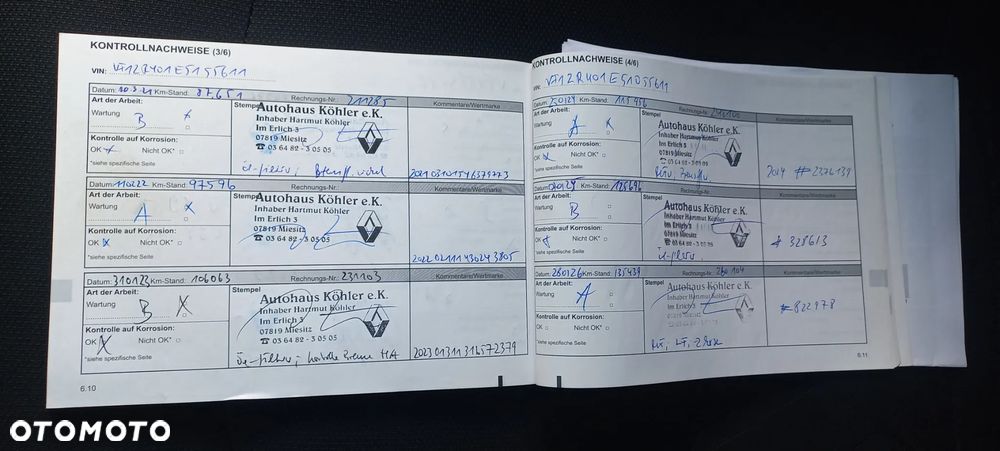 KONTROLLNACHWEISE (3/6)
VIN:
Datum: 10.3.21 Km-Stand: 87651 Rechnungs-Nr.: 211285 Kommentare/Wertmarke
Art der Arbeit: Stempel
Wartung B x
Autohaus Köhler e.K.
Inhaber Hartmut Köhler
Im Erlich 3
07819 Miesitz
☎ 03 64 82 - 3 05 05
Kontrolle auf Korrosion:
OK x Nicht OK* □
*siehe spezifische Seite
Datum: 110222 Km-Stand: 97596 Rechnungs-Nr.: Kommentare/Wertmarke
Art der Arbeit: Stempel
Wartung A x
Autohaus Köhler e.K.
Inhaber Hartmut Köhler
Im Erlich 3
07819 Miesitz
☎ 03 64 82 - 3 05 05
Kontrolle auf Korrosion:
OK x Nicht OK* □
*siehe spezifische Seite
Datum: 310123 Km-Stand: 106063 Rechnungs-Nr.: 231103 Kommentare/Wertmarke
Art der Arbeit: Stempel
Wartung B X
Autohaus Köhler e.K.
Inhaber Hartmut Köhler
Im Erlich 3
07819 Miesitz
☎ 03 64 82 - 3 05 05
Kontrolle auf Korrosion:
OK X Nicht OK* □
*siehe spezifische Seite
6.10
KONTROLLNACHWEISE (4/6)
VIN:
Datum: Km-Stand: 115456 Rechnungs-Nr.: Kommentare/Wertmarke
Art der Arbeit: Stempel
Wartung A x
Autohaus Köhler e.K.
Inhaber Hartmut Köhler
Im Erlich 3
07819 Miesitz
☎ 03 64 82 - 3 05 05
Kontrolle auf Korrosion:
OK x Nicht OK* □
*siehe spezifische Seite
Datum: Km-Stand: Rechnungs-Nr.: Kommentare/Wertmarke
Art der Arbeit: Stempel
Wartung B
Autohaus Köhler e.K.
Inhaber Hartmut Köhler
Im Erlich 3
07819 Miesitz
☎ 03 64 82 - 3 05 05
Kontrolle auf Korrosion:
OK Nicht OK* □
# 328613
*siehe spezifische Seite
Datum: 260126 Km-Stand: 135439 Rechnungs-Nr.: 260104 Kommentare/Wertmarke
Art der Arbeit: Stempel
Wartung A
Autohaus Köhler e.K.
Inhaber Hartmut Köhler
Im Erlich 3
07819 Miesitz
☎ 03 64 82 - 3 05 05
# 822978
Kontrolle auf Korrosion:
OK □ Nicht OK* □
*siehe spezifische Seite
6.11
OTOMOTO